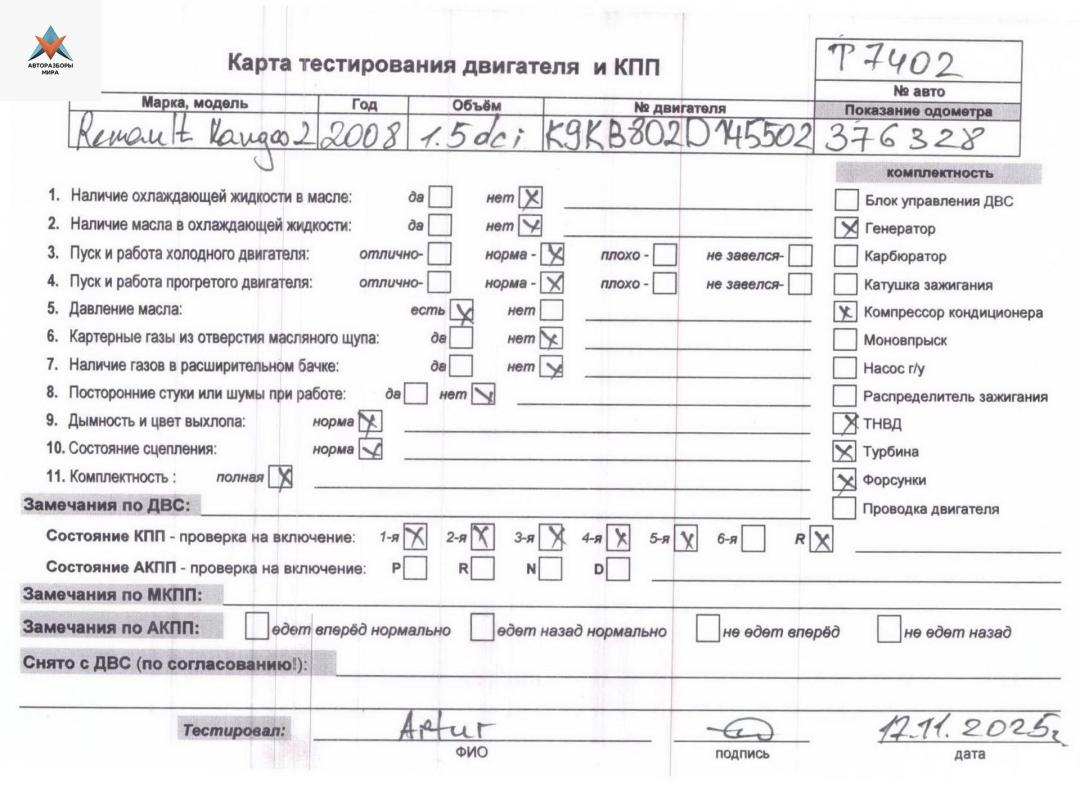 АВТОРАЗБОРЫ
МИРА
Карта тестирования двигателя и КПП
T 7402
№ авто
Марка, модель Год Объём № двигателя Показание одометра
Renault Kangoo 2 2008 1.5 dci K9KB802D145502 376328
комплектность
1. Наличие охлаждающей жидкости в масле: да нет X
Блок управления ДВС
2. Наличие масла в охлаждающей жидкости: да нет X
X Генератор
3. Пуск и работа холодного двигателя: отлично- норма - X плохо - не завелся-
Карбюратор
4. Пуск и работа прогретого двигателя: отлично- норма - X плохо - не завелся-
Катушка зажигания
5. Давление масла: есть X нет
X Компрессор кондиционера
6. Картерные газы из отверстия масляного щупа: да нет X
Моновпрыск
7. Наличие газов в расширительном бачке: да нет X
Насос г/у
8. Посторонние стуки или шумы при работе: да нет X
Распределитель зажигания
9. Дымность и цвет выхлопа: норма X
X ТНВД
10. Состояние сцепления: норма X
X Турбина
11. Комплектность : полная X
X Форсунки
Замечания по ДВС:
Проводка двигателя
Состояние КПП - проверка на включение: 1-я X 2-я X 3-я X 4-я X 5-я X 6-я R X
Состояние АКПП - проверка на включение: P R N D
Замечания по МКПП:
Замечания по АКПП: едет вперёд нормально едет назад нормально не едет вперёд не едет назад
Снято с ДВС (по согласованию!):
Тестировал: Artur 17.11.2025г
ФИО подпись дата